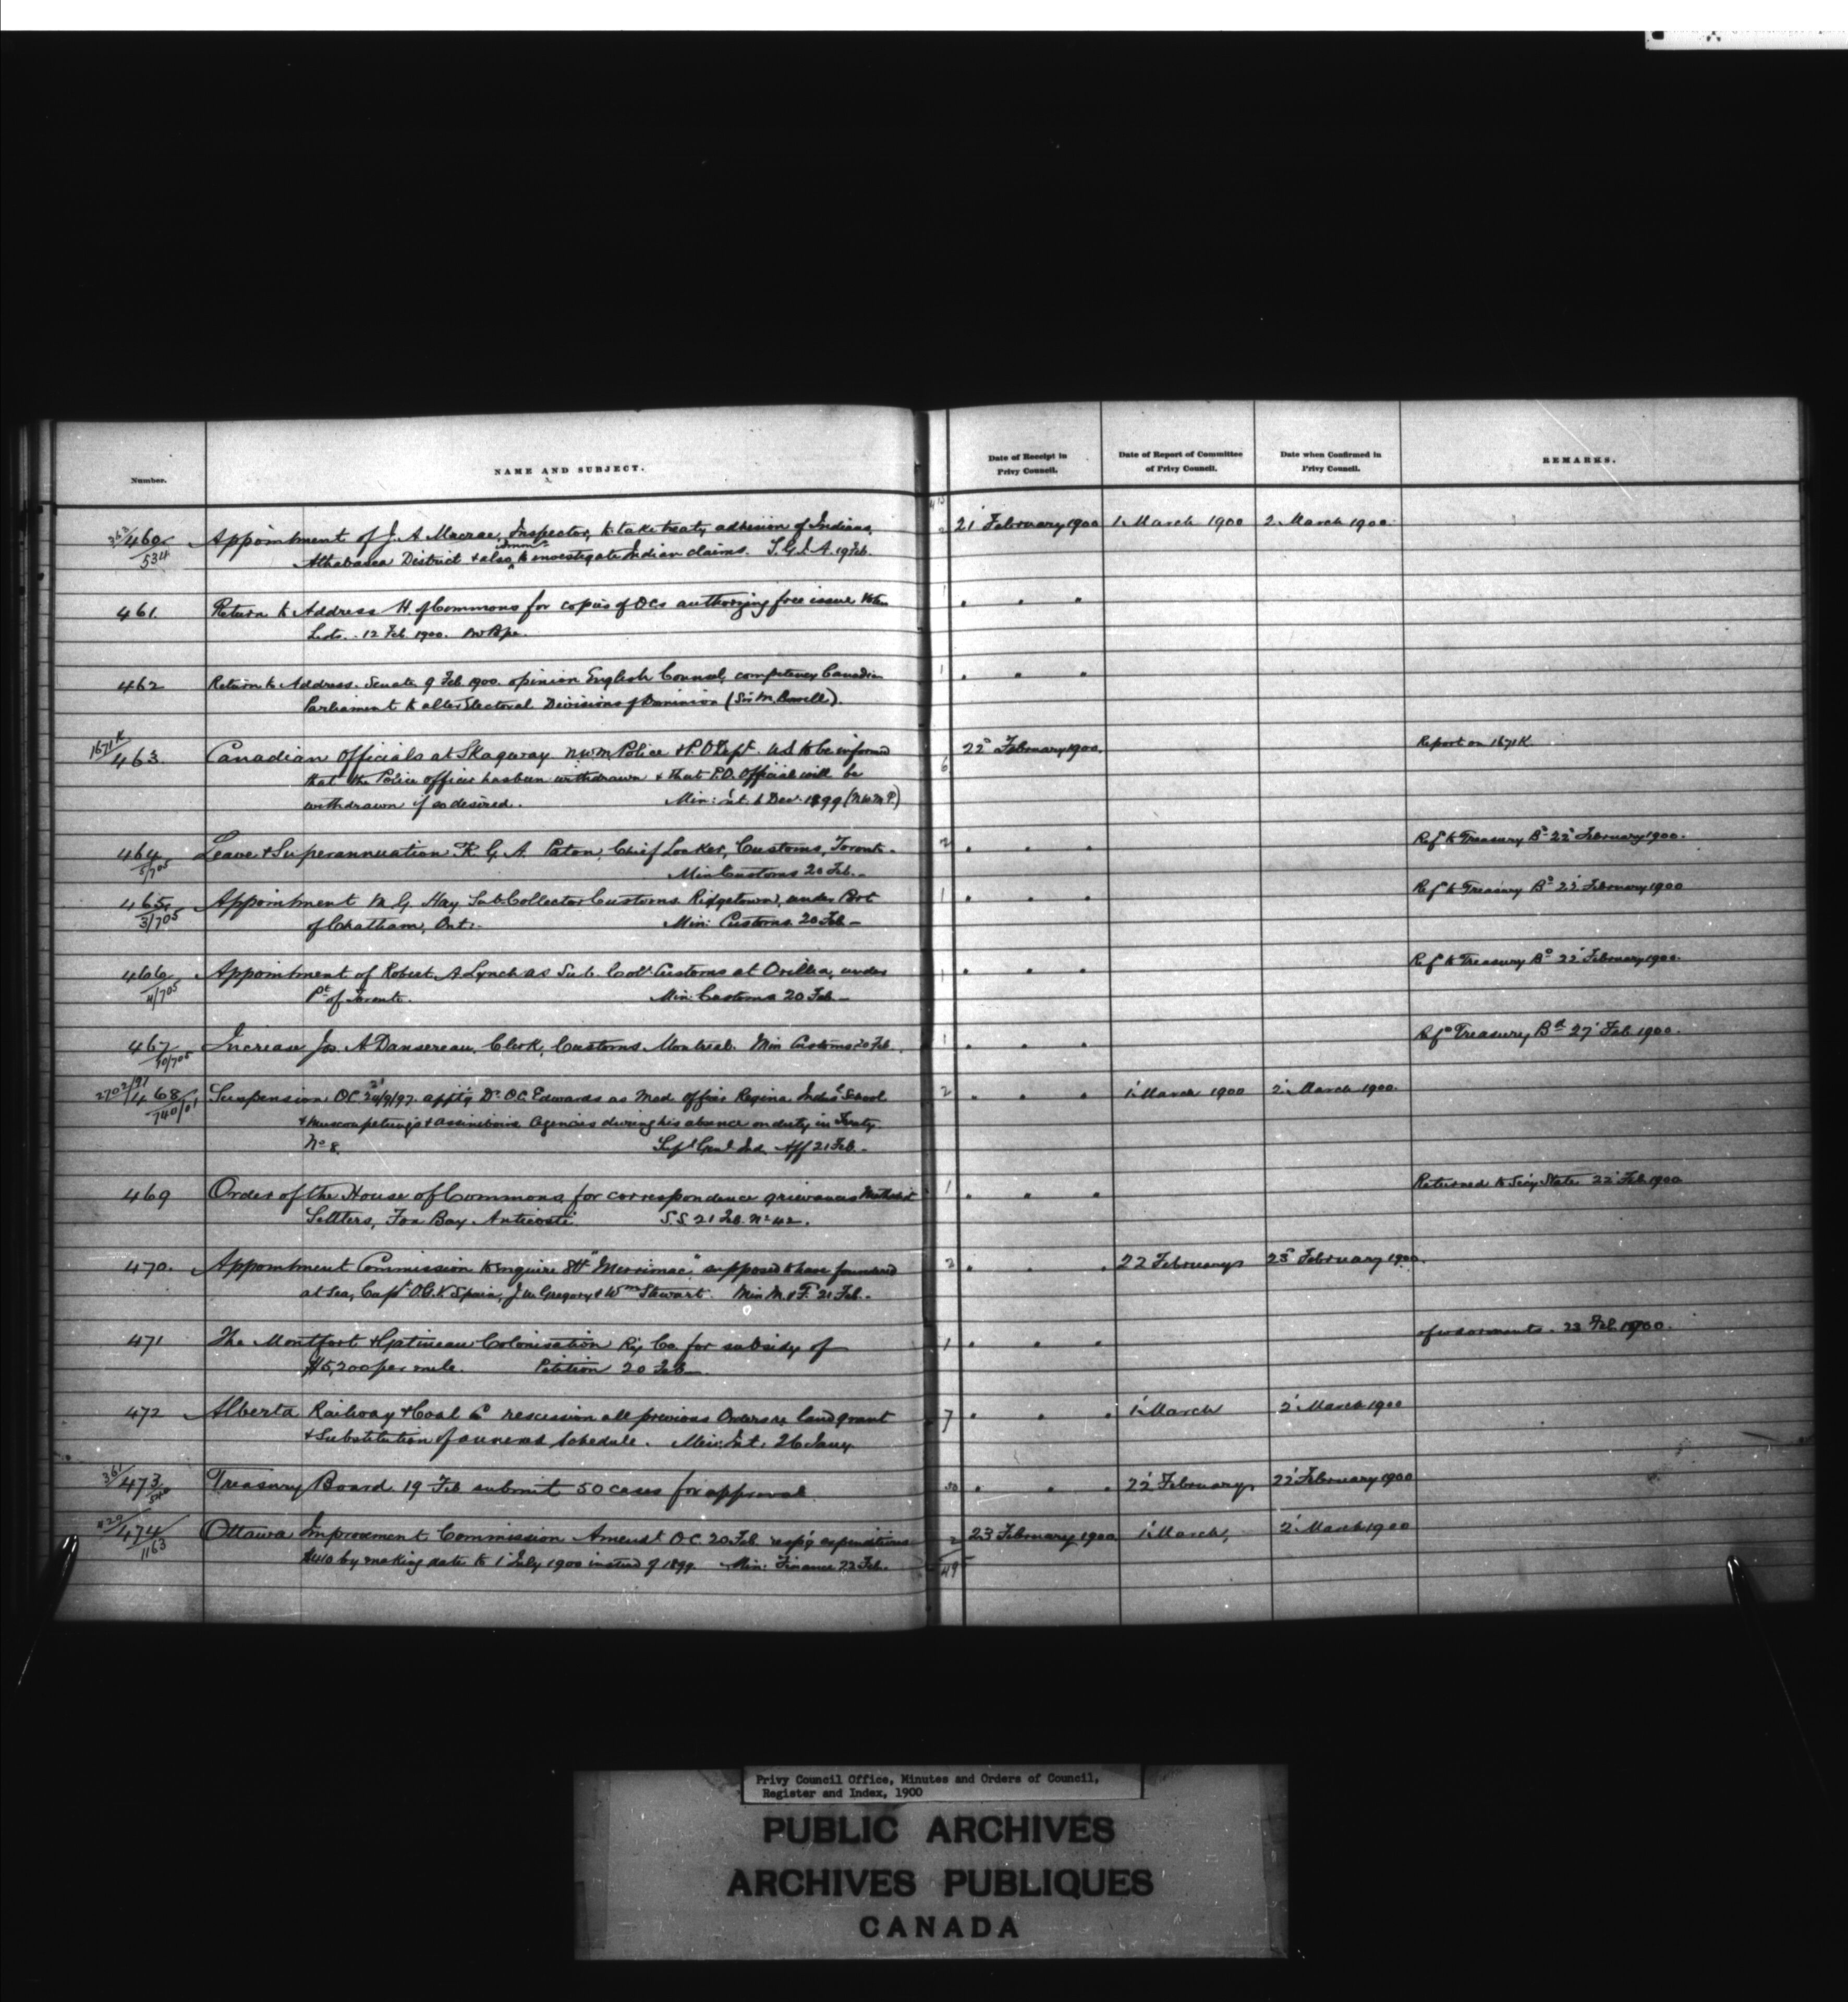 Number.
NAME AND SUBJECT.
Date of Receipt in Privy Council.
Date of Report of Committee of Privy Council.
Date when Confirmed in Privy Council.
REMARKS.
460 Appointment of J. A Macrae, Inspector, to take treaty adhesion of Indians, 21 February 1900 1 March 1900 2 March 1900
534 Athabasca District & also to investigate Indian claims. S.G.I.A. 19 Feb.
461. Return to Address H. of Commons for copies of OCs authorizing free issue
Lists. 12 Feb. 1900.
462 Return to Address. Senate 9 Feb 1900. opinion English Counsel, competency Canadian
Parliament to alter Electoral Divisions of Dominion (Sir M. Bowell).
1671K
463 Canadian Officials at Skagway. N.W.M. Police & P.O. Dept. U.S. to be informed 6 22 February 1900. Report on 1671K.
that the Police officer has been withdrawn & that P.O. Official will be
withdrawn if so desired. Min: Int. 6 Dec. 1899 (N.W.M.P.)
464 Leave & Superannuation K. G. A. Paton, Chief Locker, Customs, Toronto. 2 Ref to Treasury Bd 22 February 1900.
5/705 Min Customs 20 Feb.
465 Appointment M. G. Hay Sub Collector Customs Ridgetown, under Port 1 Ref to Treasury Bd 22 February 1900
3/705 of Chatham, Ont:. Min: Customs 20 Feb
466 Appointment of Robert A Lynch as Sub. Coll. Customs at Orillia, under 1 Ref to Treasury Bd 22 February 1900.
4/705 Pt of Toronto. Min Customs 20 Feb
467 Increase Jos. A Dansereau, Clerk, Customs. Montreal. Min Customs 20 Feb. 1 Ref Treasury Bd 27 Feb. 1900.
10/705
2702/97
468 Suspension OC 24/9/97. apptg Dr. O.C. Edwards as Med. officer Regina Indl School 2 1 March 1900 2 March 1900.
740/01 & Muscowpetung's & Assiniboine Agencies during his absence on duty in Treaty
No 8. Supt Genl Ind. Aff 21 Feb.
469 Order of the House of Commons for correspondence grievances Methodist 1 Returned to Secy State 22 Feb 1900
Settlers, Fox Bay. Anticosti. S.S. 21 Feb. No 42.
470. Appointment Commission to enquire SS "Merrimac" supposed to have foundered 2 22 February 23 February 1900.
at sea, Capt O.G.V. Spain, J.U. Gregory & Wm Stewart. Min M. & F. 21 Feb.
471 The Montfort & Gatineau Colonisation Ry. Co. for subsidy of 1 23 Feb 1900.
$5,200 per mile. Petition 20 Feb.
472 Alberta Railway & Coal Co rescission all previous Orders re land grant 7 1 March 2 March 1900
& Substitution of annexed Schedule. Min: Int. 26 Jany.
361
473 Treasury Board 19 Feb submit 50 cases for approval 50 22 February 22 February 1900
420
474 Ottawa Improvement Commission Amendt O.C. 20 Feb. respg expenditure 2 23 February 1900 1 March, 2 March 1900
1163 by making date to 1 July 1900 instead of 1899. Min: Finance 22 Feb.
Privy Council Office, Minutes and Orders of Council,
Register and Index, 1900
PUBLIC ARCHIVES
ARCHIVES PUBLIQUES
CANADA